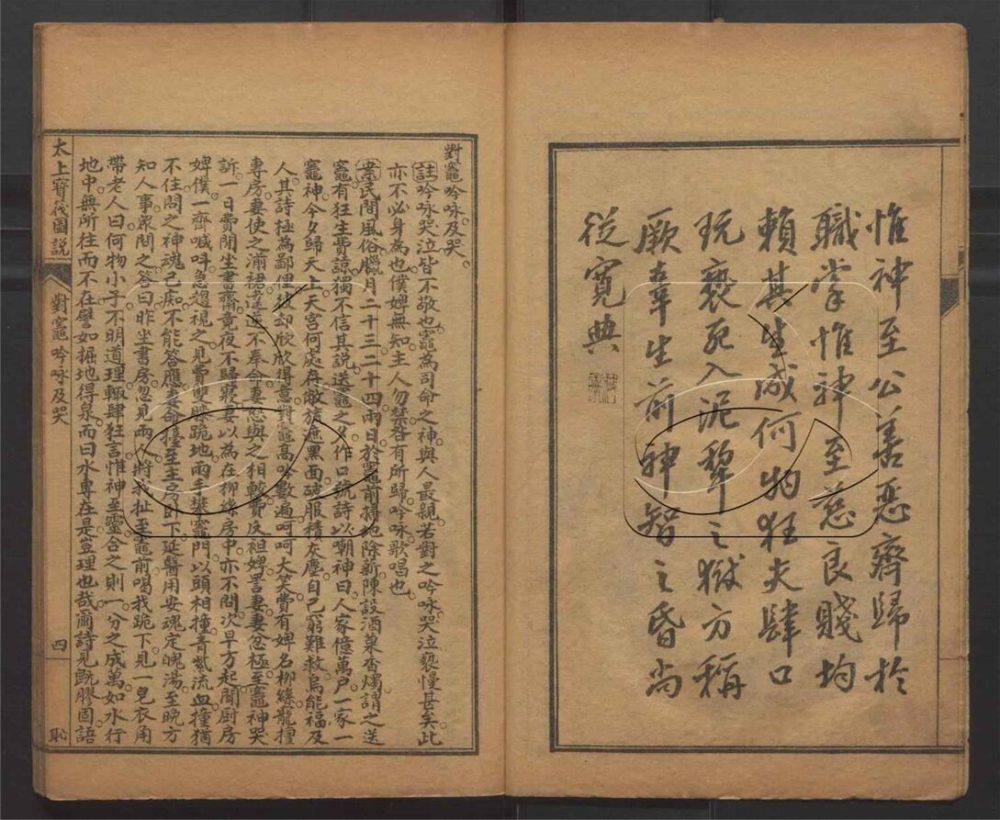 惟神至公善惡齊歸於
職掌惟神至慈良賤均
賴其生成何物狂夫肆口
玩褻死入泥犂之獄方稱
厥辜生前神智之昏尚
從寬典
對竈吟咏及哭
註吟咏哭泣皆不敬也竈為司命之神與人最親若對之吟咏哭泣褻慢甚矣此
亦不必身為也僕婢無知主人勿禁咎有所歸吟咏歌唱也
案民間風俗臘月二十三二十四兩日於竈前掃絶除新陳設酒菓香燭謂之送
竈有狂生費諒獨不信其說送竈之夕作口號詩以嘲神曰人家億萬戶一家一
竈神今夕歸天上天宮何處存敝旅遮黑面破服積灰塵自己窮難救烏能福及
人其詩極為鄙俚彼却欣欣得意對竈高吟數遍呵呵大笑費有婢名柳綫龍擅
專房妻使之滌裙遲遲不奉命妻怒與之相較費反袒婢詈妻妻忿極至竈神哭
訴一日費閒坐書齋竟夜不歸寢妻以為在柳綫房中亦不問次早方起聞厨房
婢僕一齊喊呌急趨視之見費雙膝跪地兩手挬竈門以頭相撞青紫流血撞猶
不住問之神魂已痴不能答應妻命擡至主房臥下延醫用安魂定魄湯至晚方
知人事衆問之答曰昨坐書房忽見兩人將我扯至竈前喝我跪下見一皂衣角
帶老人曰何物小子不明道理輙肆狂言惟神至靈合之則一分之成萬如水行
地中無所往而不在譬如掘地得泉而曰水專在是豈理也哉爾詩見觝膠固語
太上寶筏圖說
對竈吟咏及哭
四
恥